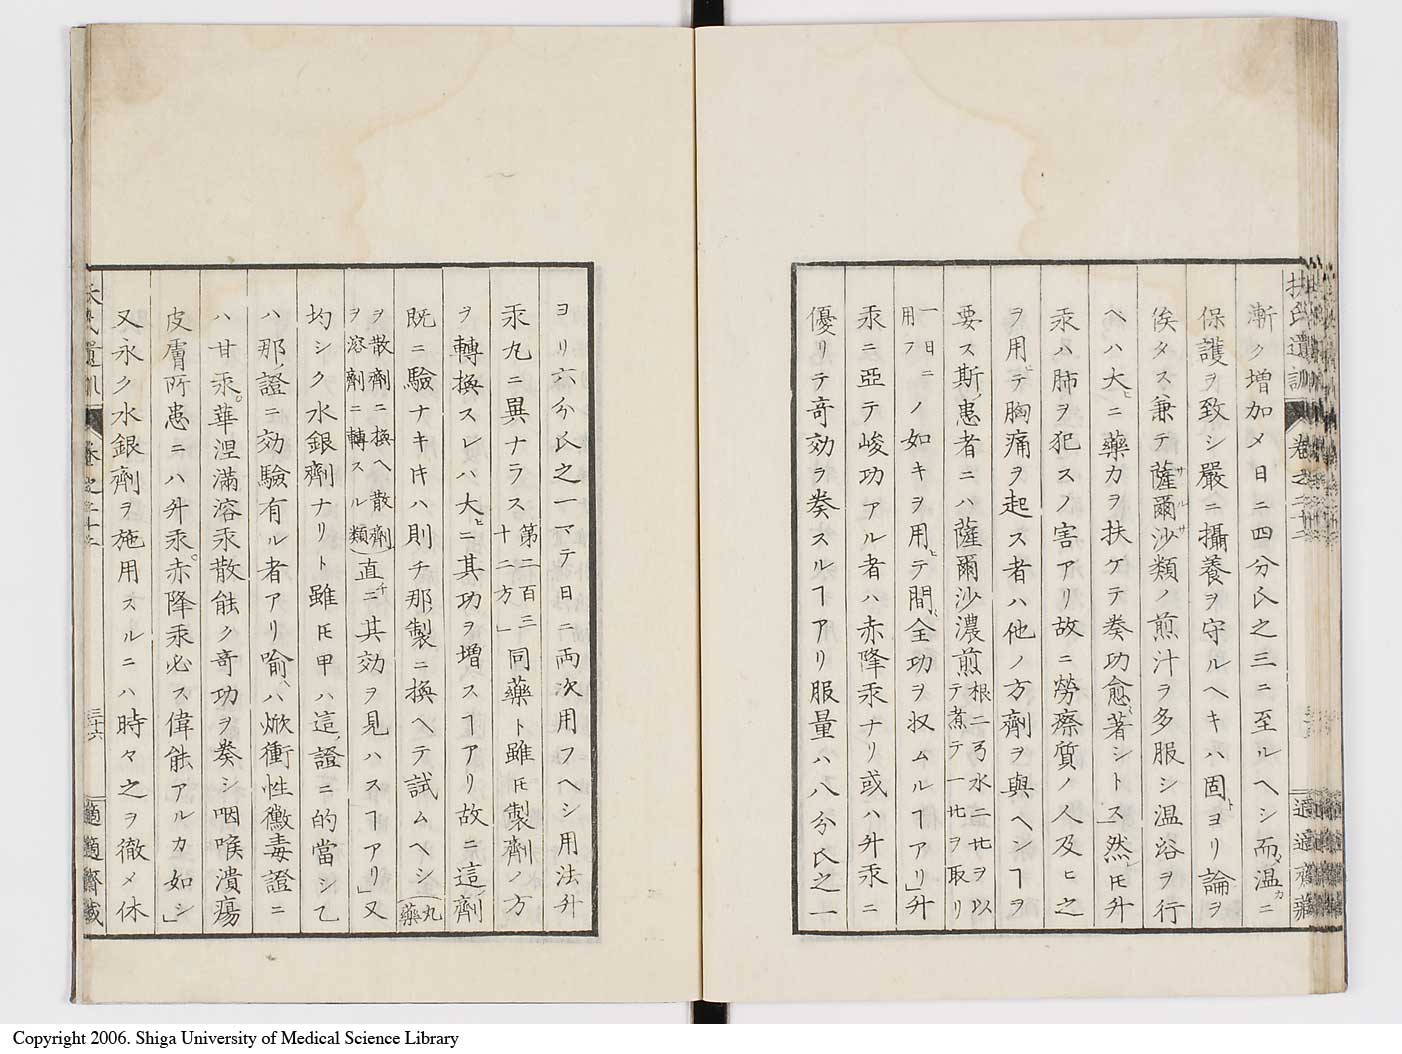 扶氏遺訓 卷之二十二
適適齋藏
漸ク增加メ日ニ四分氏之三ニ至ルヘシ而メ温カニ
保護ヲ致シ嚴ニ攝養ヲ守ルヘキハ固トヨリ論ヲ
俟タス兼テ薩爾沙類ノ煎汁ヲ多服シ温浴ヲ行
ヘハ大ヒニ藥力ヲ扶ケテ奏功愈〻著シトス」然レ𪜈升
汞ハ肺ヲ犯スノ害アリ故ニ勞瘵質ノ人及ヒ之
ヲ用ヒテ胸痛ヲ起ス者ハ他ノ方劑ヲ與ヘンヿヲ
要ス斯ノ患者ニハ薩爾沙濃煎根二弓水二㪷ヲ以テ煮テ一㪷ヲ取リ
一日ニ用フノ如キヲ用ヒテ間〻全功ヲ収ムルヿアリ」升
汞ニ亞テ峻功アル者ハ赤降汞ナリ或ハ升汞ニ
優リテ奇効ヲ奏スルヿアリ服量ハ八分氏之一
ヨリ六分氏之一マテ日ニ両次用フヘシ用法升
汞丸ニ異ナラス第二百三十二方」同藥ト雖𪜈製劑ノ方
ヲ轉換スレハ大ヒニ其功ヲ增スヿアリ故ニ這ノ劑
既ニ驗ナキ𪜈ハ則チ那ノ製ニ換ヘテ試ムヘシ(丸藥
ヲ散劑ニ換ヘ散劑ヲ溶劑ニ轉スル類)直チニ其効ヲ見ハスヿアリ」又
均シク水銀劑ナリト雖𪜈甲ハ這ノ證ニ的當シ乙
ハ那ノ證ニ効驗有ル者アリ喻ヘハ焮衝性黴毒證ニ
ハ甘汞。華涅滿溶汞散能ク奇功ヲ奏シ咽喉潰瘍
皮膚所患ニハ升汞。赤降汞必ス偉能アルカ如シ」
又永ク水銀劑ヲ施用スルニハ時々之ヲ徹メ休
三十六
適適齋藏